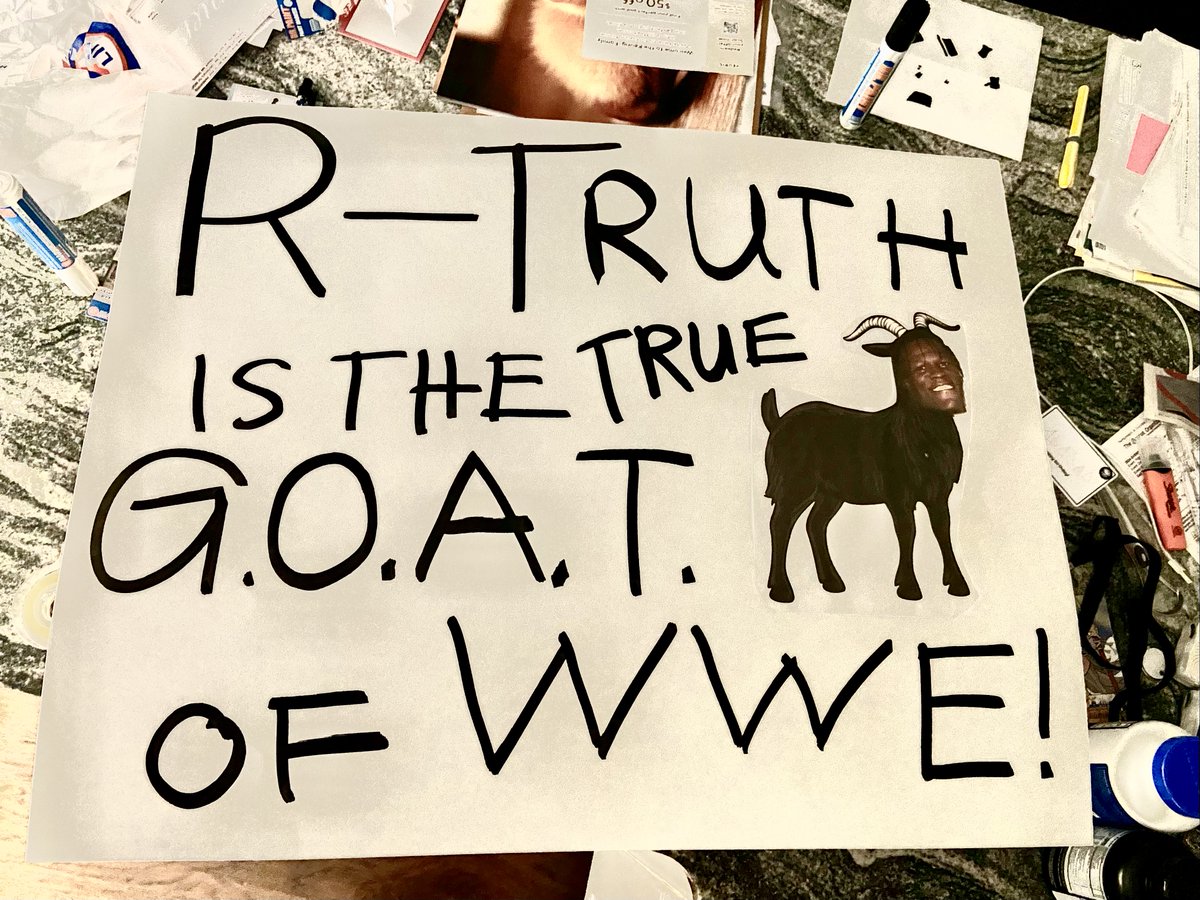 $50 off
R-TRUTH
IS THE TRUE
G.O.A.T.
OF WWE!